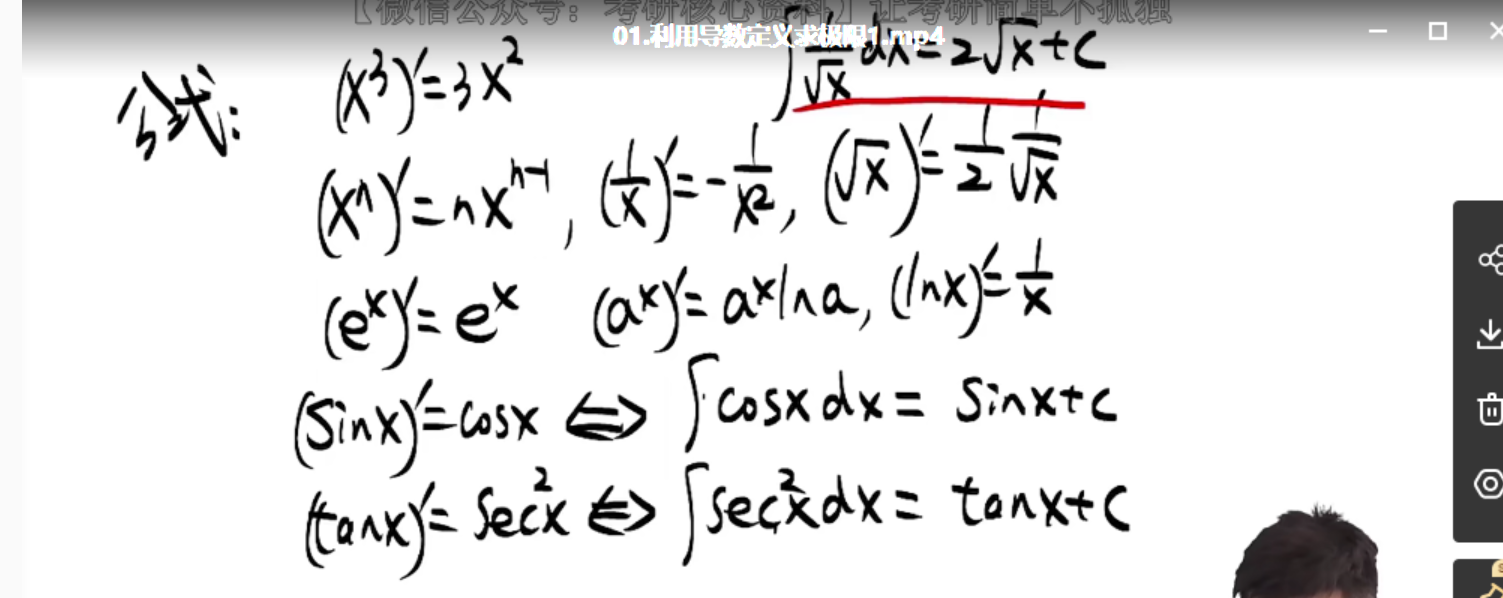 【微信公众号：考研核心资料】让考研简单不孤独
01.利用导数定义求极限1.mp4
公式: (x³)′=3x² ∫1/√x dx=2√x+C
(xⁿ)′=nxⁿ⁻¹, (1/x)′=-1/x², (√x)′=1/2 1/√x
(eˣ)′=eˣ (aˣ)′=aˣlna, (lnx)′=1/x
(sinx)′=cosx ⇔ ∫cosxdx=sinx+C
(tanx)′=sec²x ⇔ ∫sec²xdx=tanx+C